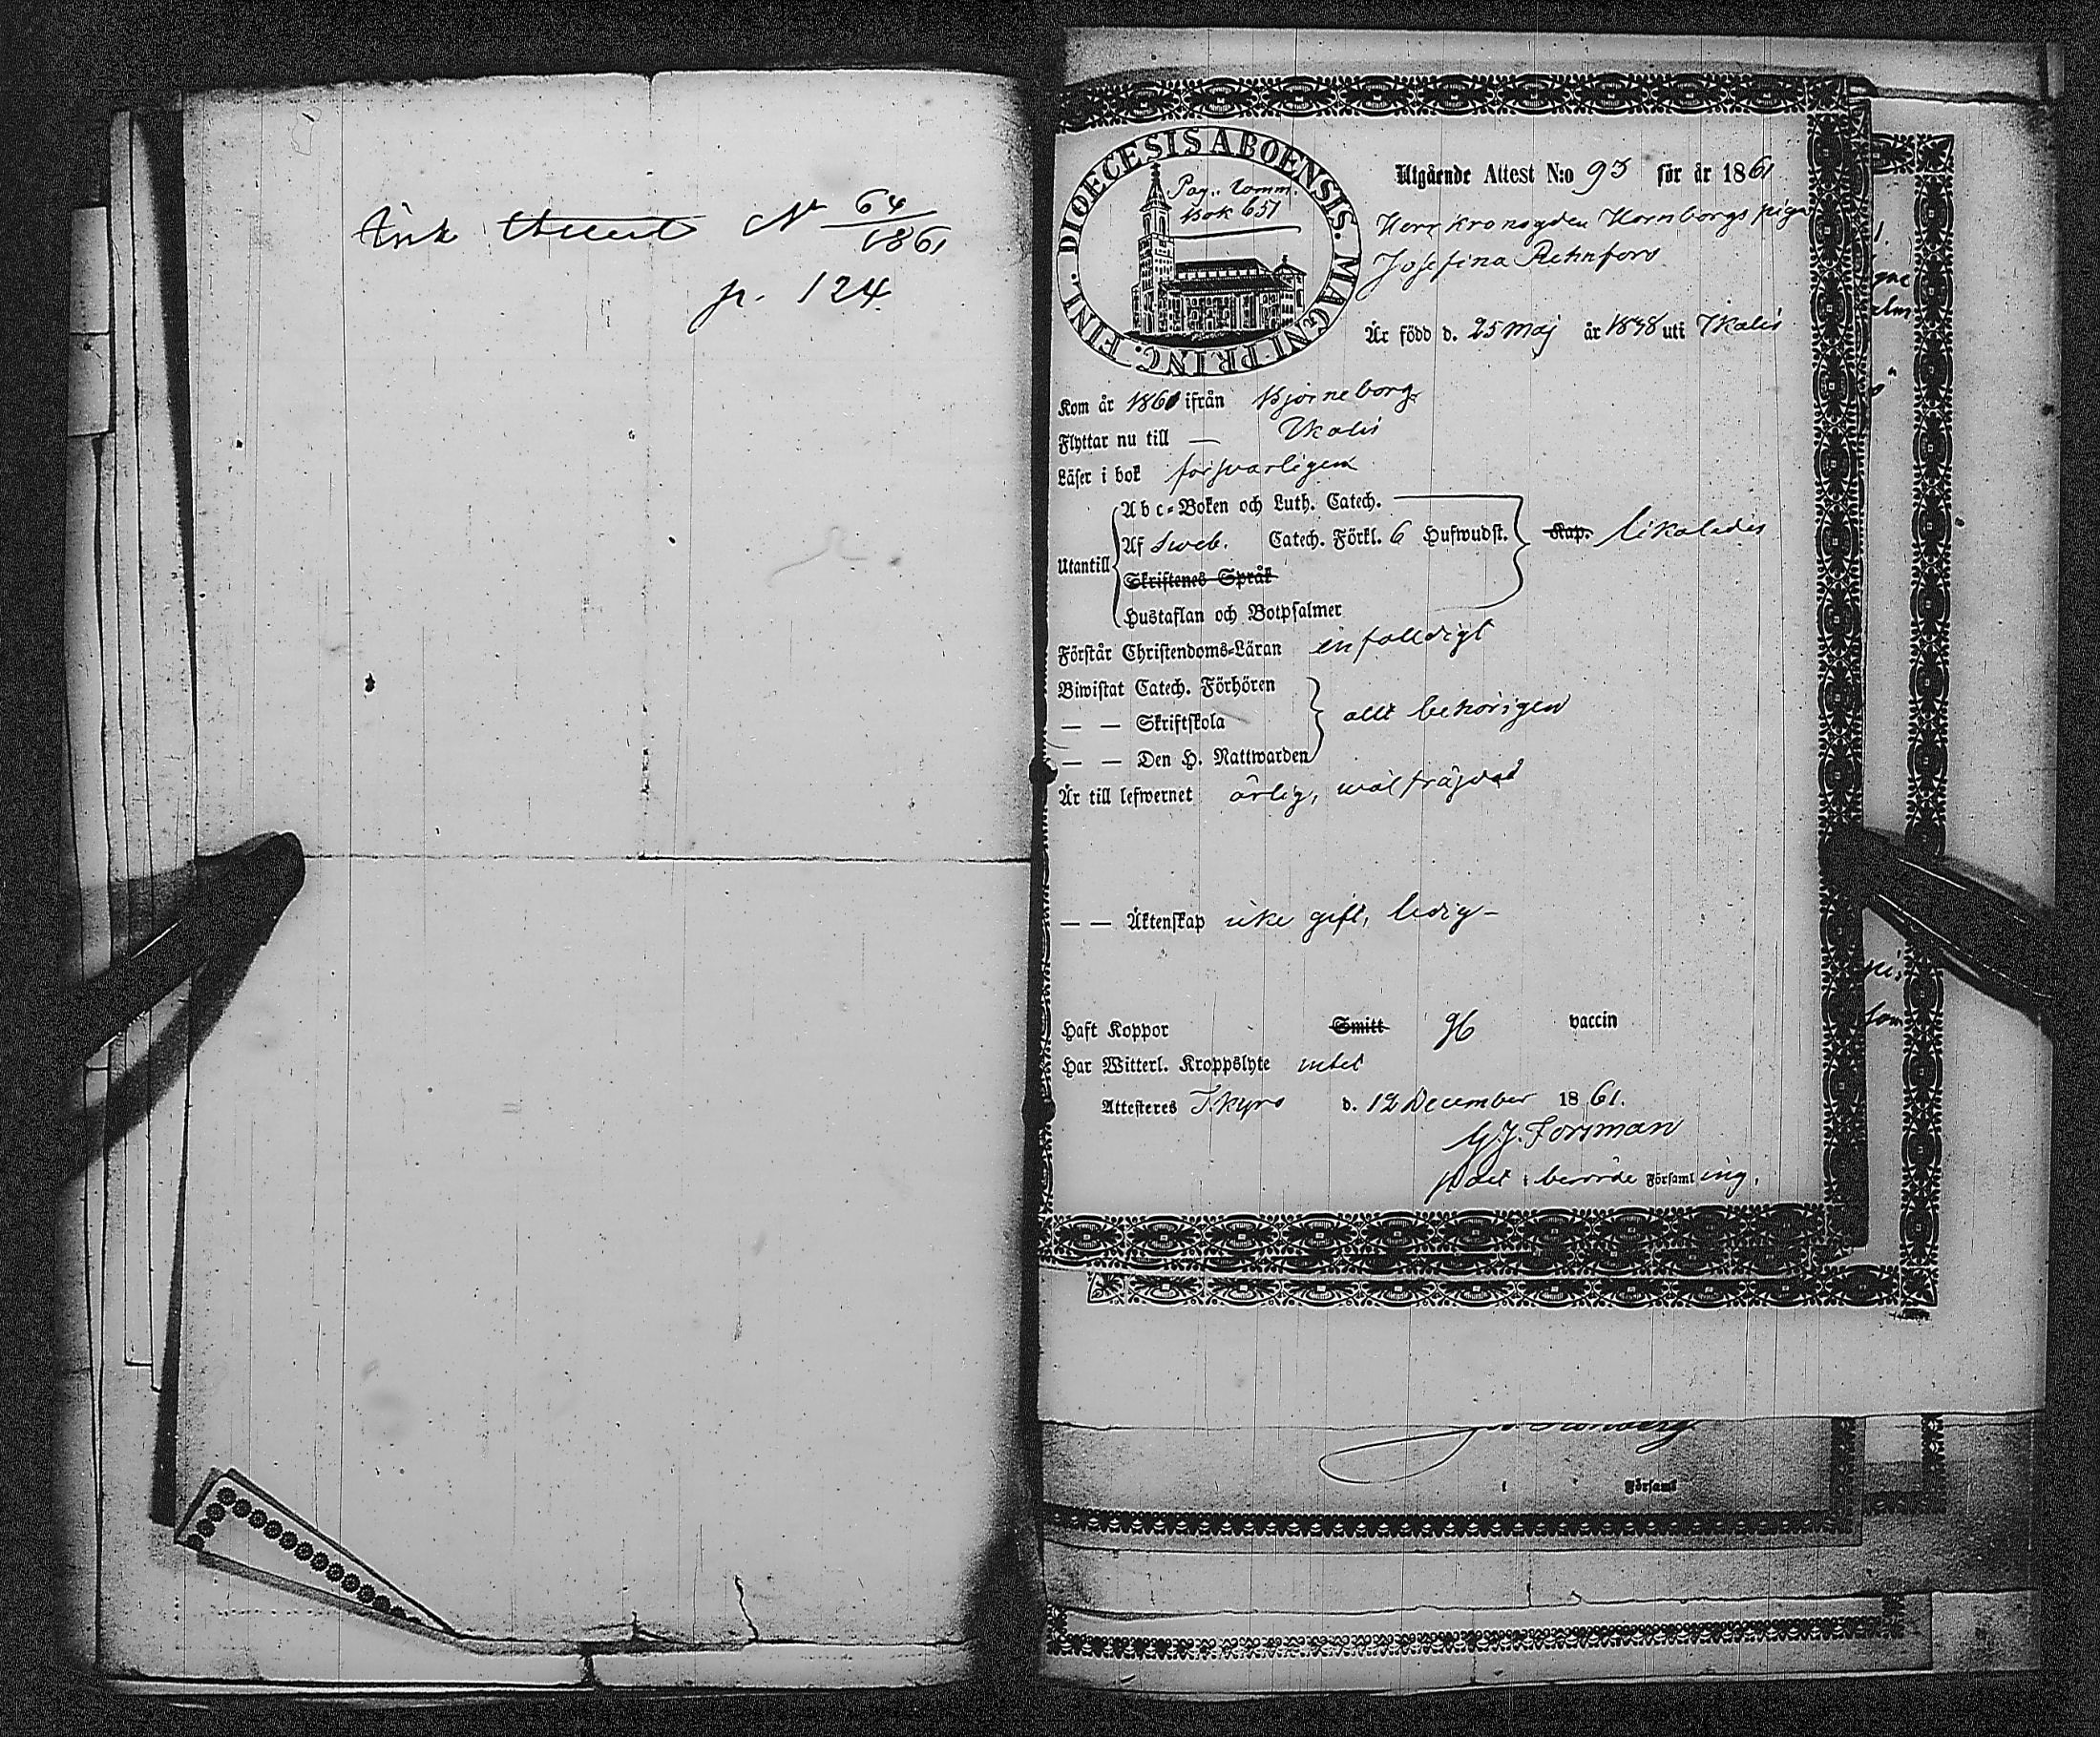 Ank Attest No 64/1861
p. 124
DIOECESIS ABOENSIS. MAGNI PRINC. FINL.
Pag. Comm.
Bok 651
Utgående Attest N:o 93 för år 1861
Herr Kronofogden Hornborgs piga
Josefina Rehnfors
Är född d. 25 Maj år 1838 uti Ikalis
Kom år 1860 ifrån Björneborg
Flyttar nu till — Ikalis
Läser i bok försvarligen
Utantill
Abc-Boken och Luth. Catech.
Af Sveb. Catech. Förkl. 6 Hufwudst. Kap. likaledes
Skriftenes Språk
Hustaflan och Botpsalmer
Förstår Christendoms-Läran enfalldigt
Biwistat Catech. Förhören
— — Skriftskola allt behörigen
— — Den H. Nattwarden
Är till lefwernet ärlig, wäl fräjdad
— — Äktenskap icke gift, ledig –
Haft Koppor Smitt vaccin
Har Witterl. Kroppslyte intet
Attesteres T.kyro d. 12 December 1861.
G J. Forsman
i berörde Församling.
i Församl